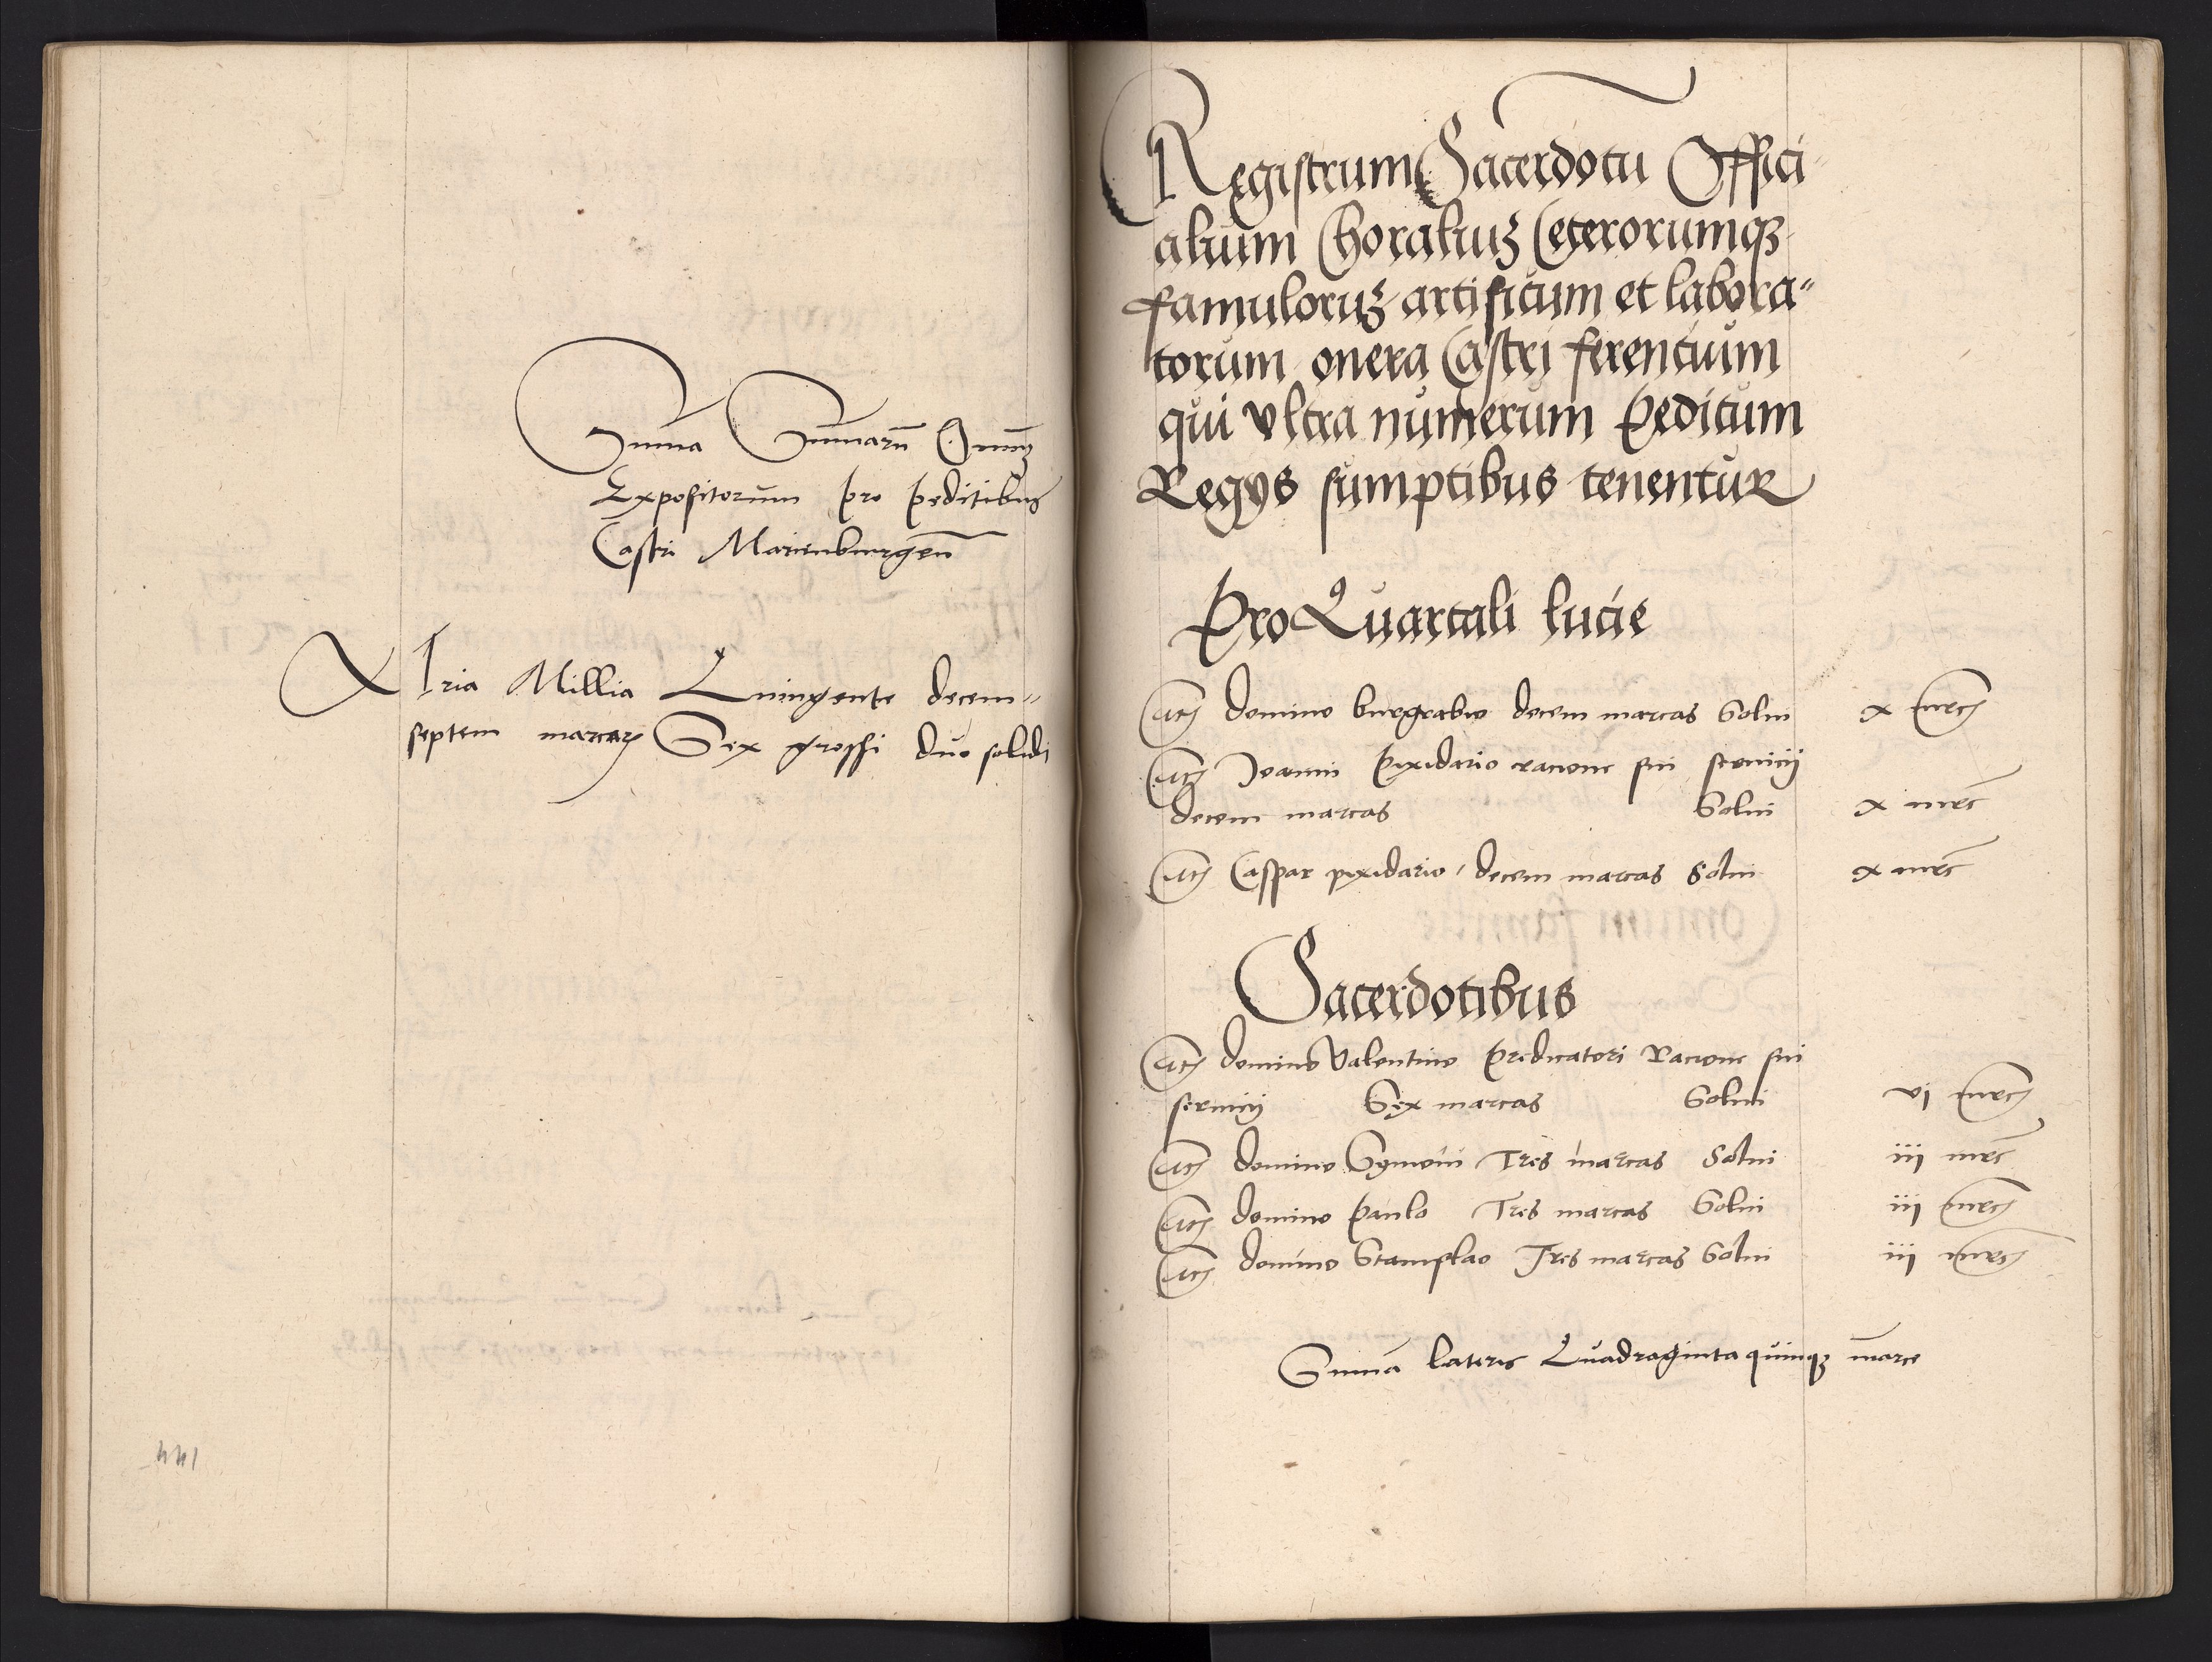 Suma Sumaru Omniu
Expositorum pro peditibus
Castri Marienburgen
Tria Millia Quingente decem-
septem marcas Sex grossi duo solidi
144
Registrum Sacerdotu Offici-
alium Choraliuz Ceterorumqz
famuloruz artificum et labora-
torum onera Castri ferentium
qui vltra numerum Peditum
Regys sumptibus tenentur
Pro Quartali lucie
Itez domino burgrabio decem marcas Solui x mrc
Itez Joanni Pixidario racione sui seruicij
decem marcas Solui x mrc
Itez Caspar pixidario decem marcas Solui x mrc
Sacerdotibus
Itez domino Valentino Predicatori Racione sui
seruicij Sex marcas Solui vi mrc
Itez domino Symoni Tres marcas Solui iij mrc
Itez domino Paulo Tres marcas Solui iij mrc
Itez domino Stanislao Tres marcas Solui iij mrc
Suma lateris Quadraginta quinqz marce